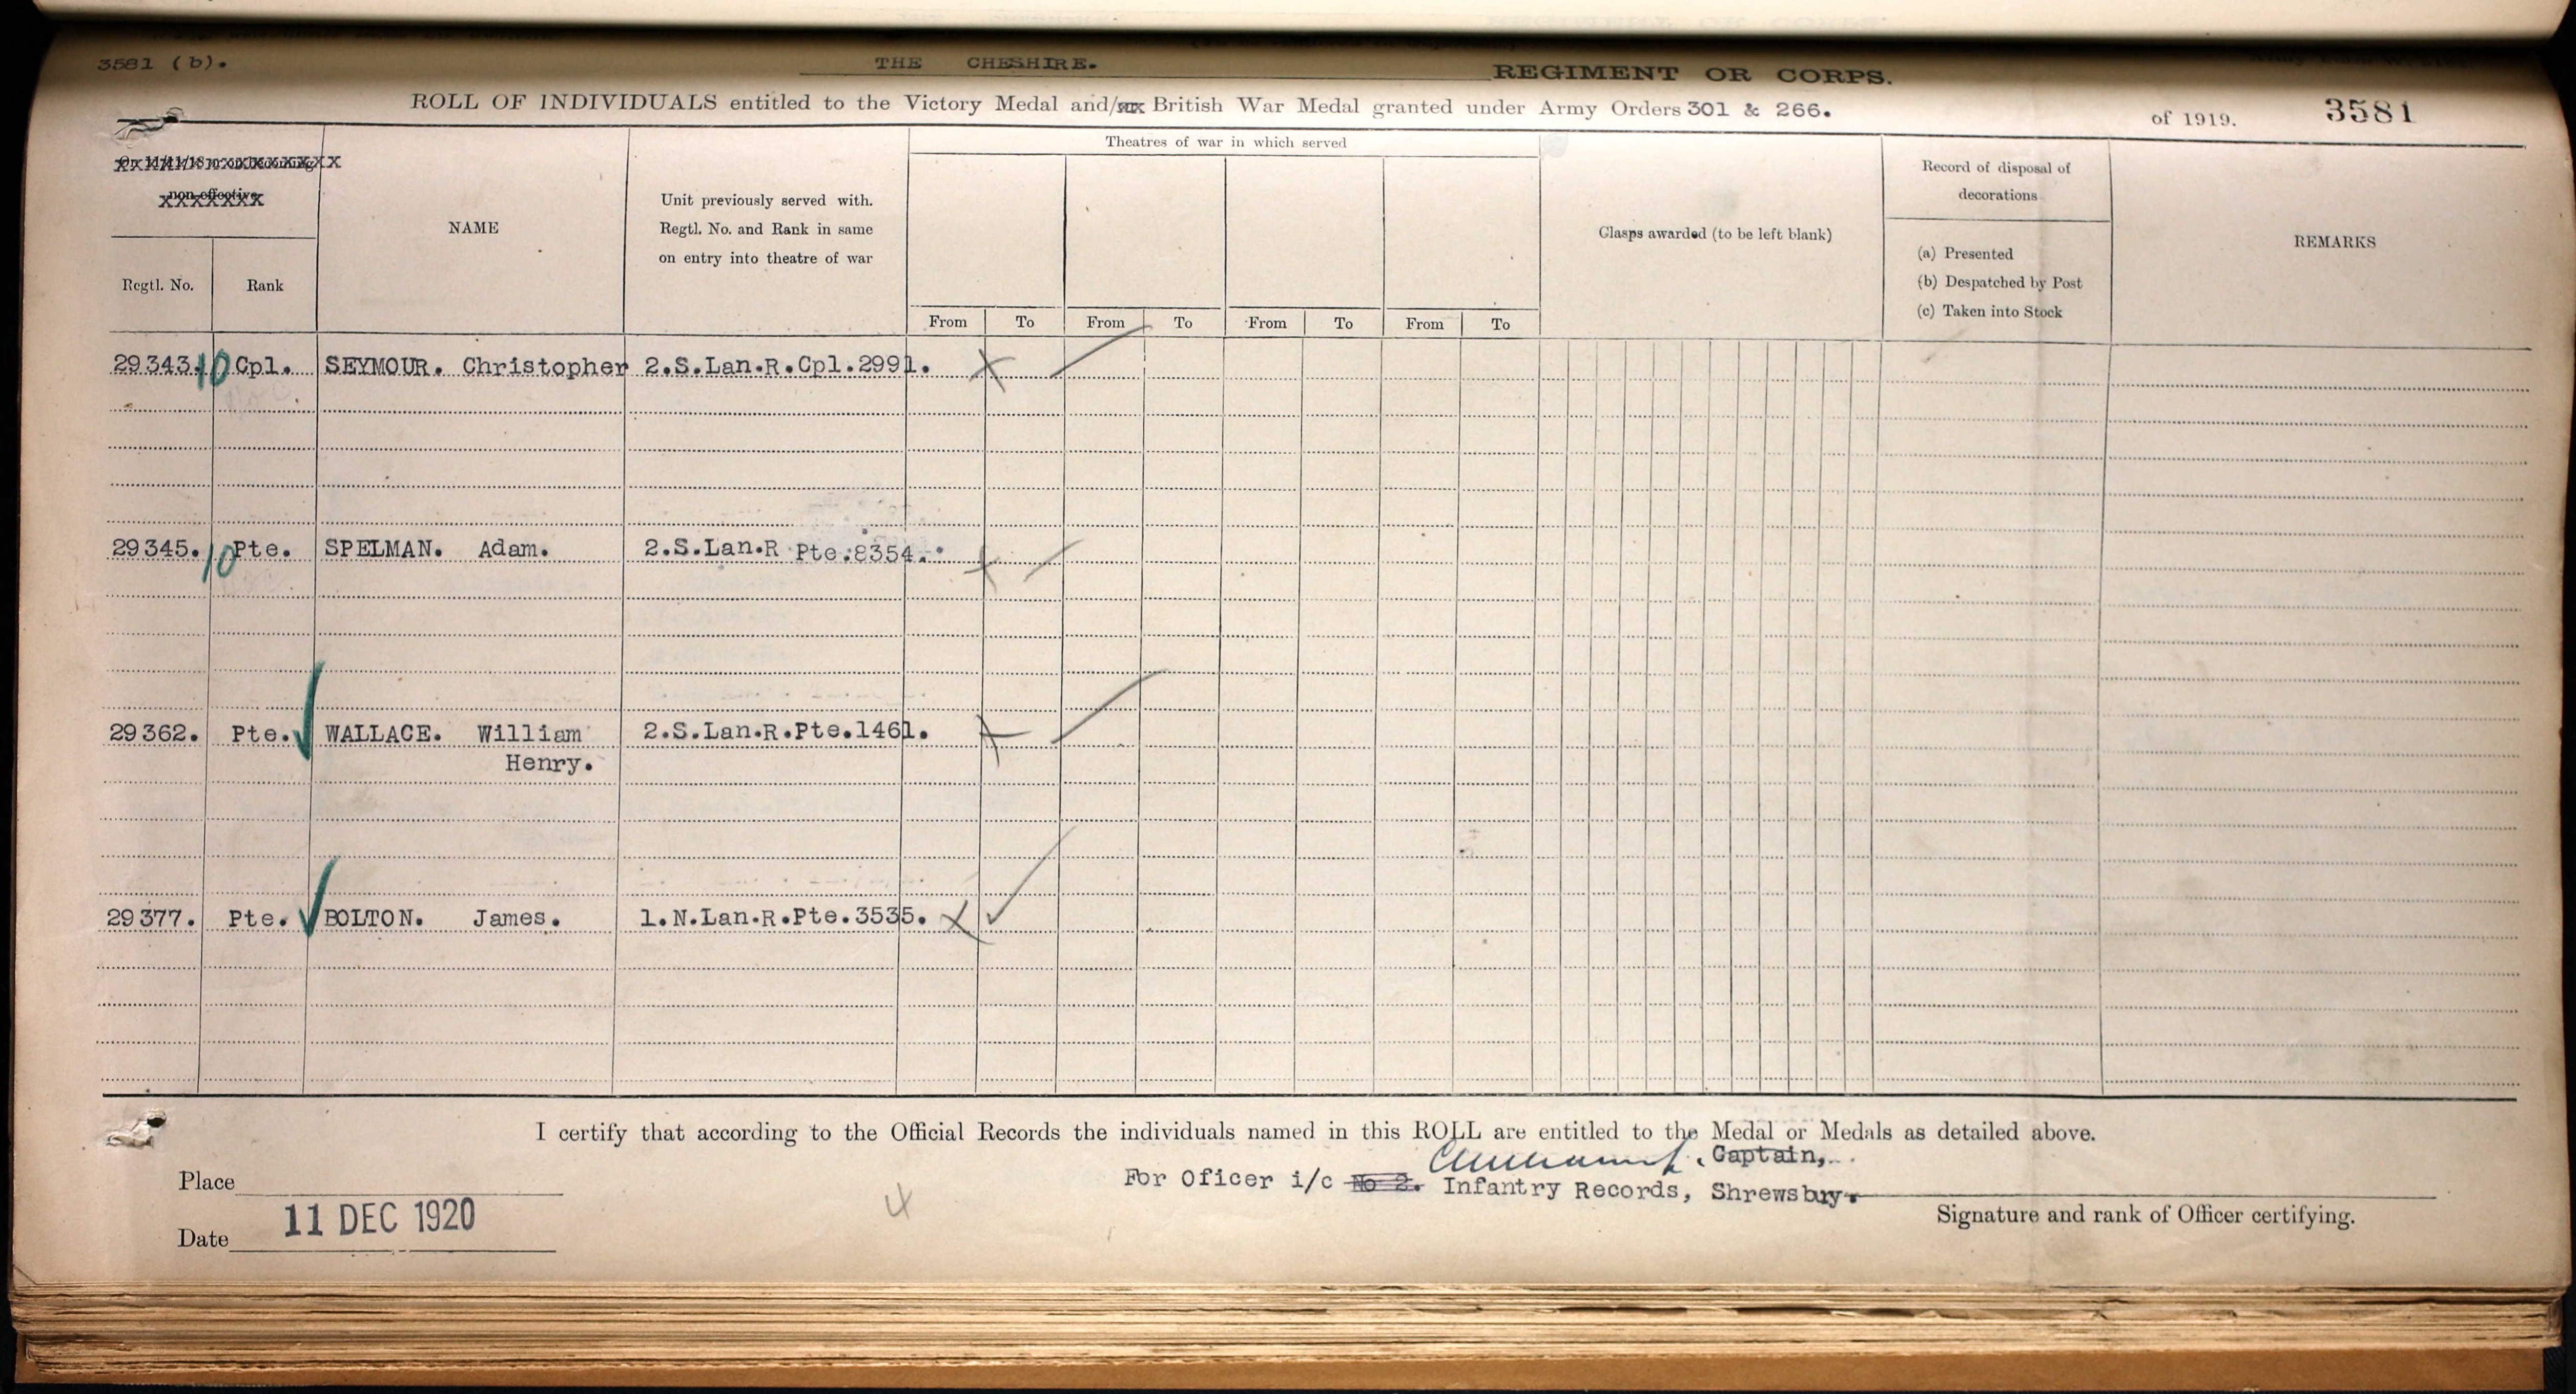 3581 (b).
THE CHESHIRE. REGIMENT OR CORPS.
ROLL OF INDIVIDUALS entitled to the Victory Medal and/ British War Medal granted under Army Orders 301 & 266. of 1919. 3581
On 11/11/18 or on becoming
non-effective
Regtl. No.
Rank
NAME
Unit previously served with.
Regtl. No. and Rank in same
on entry into theatre of war
Theatres of war in which served
From To From To From To From To
Clasps awarded (to be left blank)
Record of disposal of
decorations
(a) Presented
(b) Despatched by Post
(c) Taken into Stock
REMARKS
29343. 10 Cpl. SEYMOUR. Christopher 2.S.Lan.R.Cpl.2991. X
29345. 10 Pte. SPELMAN. Adam. 2.S.Lan.R Pte.8354. X
29362. Pte. WALLACE. William 2.S.Lan.R.Pte.1461. X
Henry.
29377. Pte. BOLTON. James. 1.N.Lan.R.Pte.3535. X
I certify that according to the Official Records the individuals named in this ROLL are entitled to the Medal or Medals as detailed above.
, Captain,
For Oficer i/c No 2. Infantry Records, Shrewsbury.
Signature and rank of Officer certifying.
Place
Date 11 DEC 1920
4